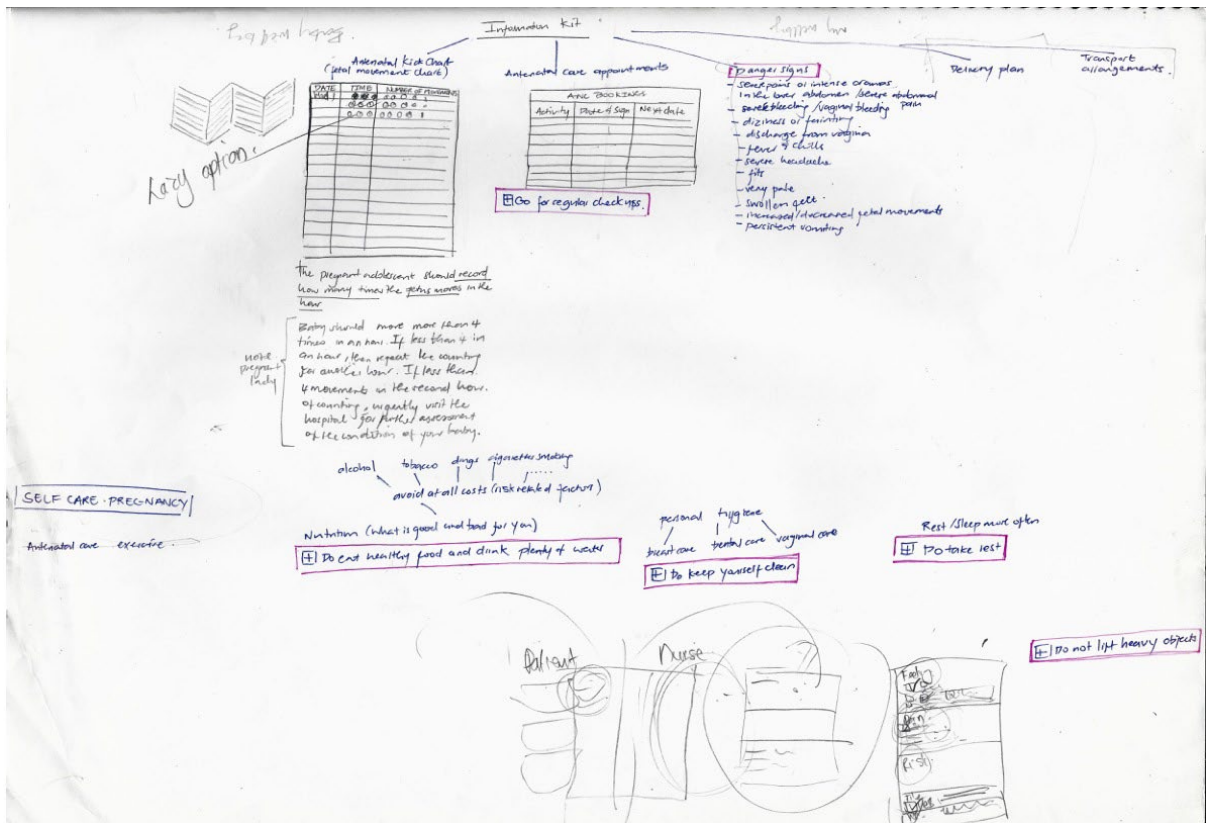 Information Kit
Antenatal Kick Chart
(fetal movement chart)
DATE TIME NUMBER OF MOVEMENTS
Lazy option.
The pregnant adolescent should record
how many times the fetus moves in the
hour
note
pregnant
lady
Baby should move more than 4
times in an hour. If less than 4 in
an hour, then repeat the counting
for another hour. If less than
4 movements in the second hour
of counting, urgently visit the
hospital for further assessment
of the condition of your baby.
Antenatal care appointments
ANC BOOKINGS
Activity Date of Sign Next date
Go for regular check ups.
Danger signs
- severe pains or intense cramps
in the lower abdomen /severe abdominal
pain
- bleeding /vaginal bleeding
- diziness or fainting
- discharge from vagina
- fever & chills
- severe headache
- fits
- very pale
- swollen feet
- increased/decreased fetal movements
- persistent vomiting
Delivery plan
Transport
arrangements
SELF CARE - PREGNANCY
Antenatal care exercise
alcohol tobacco drugs cigarettes smoking
avoid at all costs (risk related factors)
Nutrition (what is good and bad for you)
Do eat healthy food and drink plenty of water
personal hygiene
breast care dental care vaginal care
Do keep yourself clean
Rest /Sleep more often
Do take rest
Do not lift heavy objects
Patient Nurse
Risk